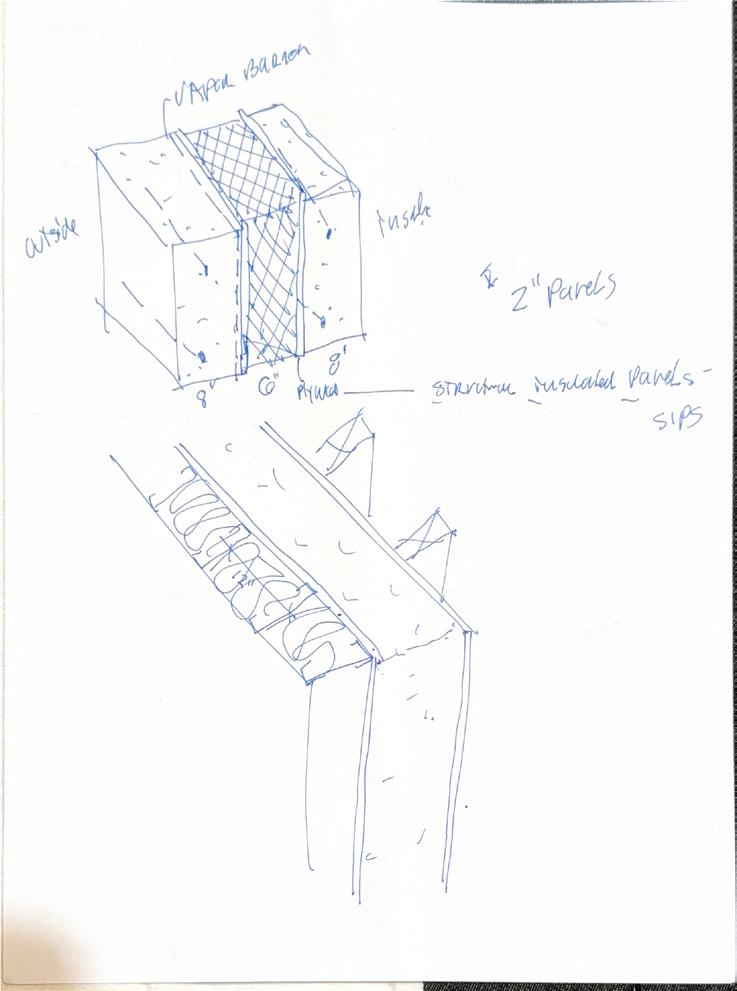 VAPOR BARRIER
outside
inside
2" PANELS
8"
6"
PLYWOOD
8"
STRUCTURAL INSULATED PANELS -
SIPS